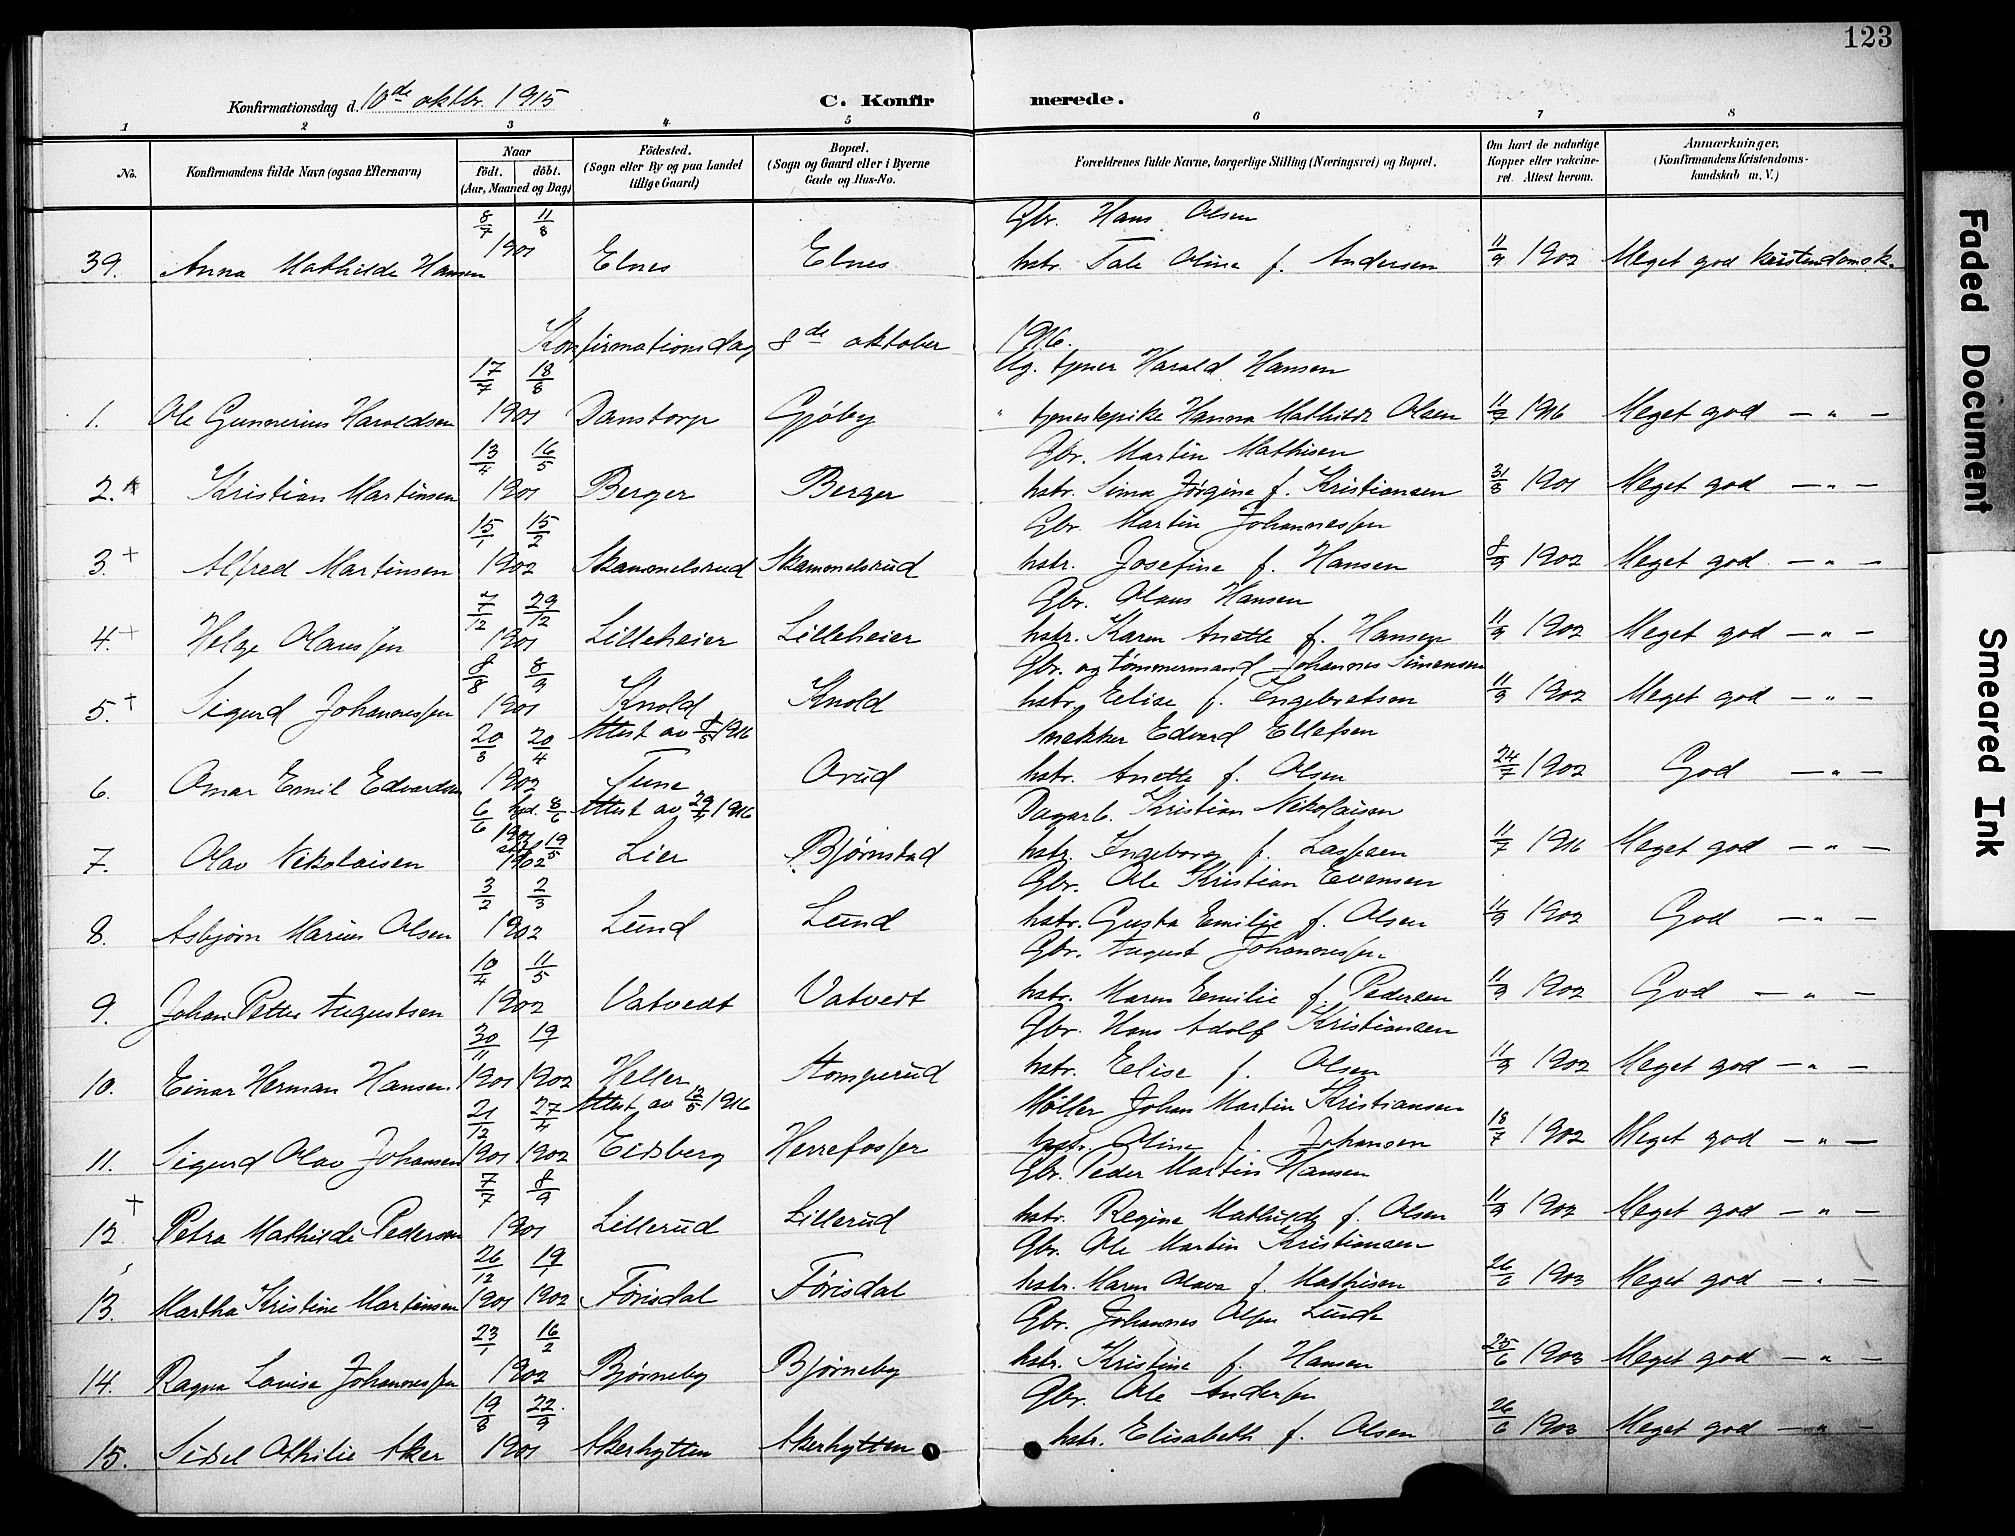 123
Konfirmationsdag d. 10de oktbr. 1915 C. Konfirmerede.
1 2 3 4 5 6 7 8
No. Konfirmandens fulde Navn (ogsaa Efternavn) Naar født. døbt. (Aar, Maaned og Dag) Födested. (Sogn eller By og paa Landet tillige Gaard) Bopæl. (Sogn og Gaard eller i Byerne Gade og Hus-No. Forældrenes fulde Navne, borgerlige Stilling (Næringsvei) og Bopæl. Om havt de naturlige Kopper eller vaccineret. Attest herom. Anmærkninger. (Konfirmandens Kristendomskundskab m. V.)
8/7 11/8 Gbr. Hans Olsen
39. Anna Mathilde Hansen 1901 Elnes Elnes hstr. Tale Oline f. Andersen 11/9 1902 Meget god kristendomsk.
Konfirmationsdag 8de oktober 1916.
17/7 18/8 Ug. tjener Harald Hansen
1. Ole Gunnerius Haraldsen 1901 Danstorp Gjøby " tjenestepike Hanna Mathilde Olsen 11/7 1916 Meget god — " —
13/4 16/5 Gbr. Martin Mathisen
2. Kristian Martinsen 1901 Berger Berger hstr. Sina Jørgine f. Kristiansen 31/8 1901 Meget god — " —
15/1 15/2 Gbr. Martin Johannessen
3. + Alfred Martinsen 1902 Skammelsrud Skammelsrud hstr. Josefine f. Hansen 8/9 1902 Meget god — " —
7/12 29/12 Gbr. Olaus Hansen
4. + Helge Olaussen 1901 Lilleheier Lilleheier hstr. Karen Anette f. Hansen 11/9 1902 Meget god — " —
8/8 8/9 Gbr. og tømmermand Johannes Simensen
5. + Sigurd Johannessen 1901 Knold Knold hstr. Elise f. Ingebretsen 11/9 1902 Meget god — " —
20/3 20/4 Attest av /5 1916 Snekker Edvard Ellefsen
6. Omar Emil Edvardsen 1902 Tune Orud hstr. Anette f. Olsen 24/7 1902 God — " —
6/6 hjd. 8/6 Attest av 29/4 1916 Dagarb. Kristian Nikolaisen
7. Olav Nikolaisen 1901 19/5 1902 Lier Bjørnstad hstr. Ingeborg f. Lassen 11/7 1916 Meget god — " —
3/2 2/3 Gbr. Ole Kristian Evensen
8. Asbjørn Marius Olsen 1902 Lund Lund hstr. Gusta Emilie f. Olsen 11/9 1902 God — " —
10/4 11/5 Gbr. August Johannessen
9. Johan Petter Augustsen 1902 Vatvedt Vatvedt hstr. Maren Emilie f. Pedersen 11/9 1902 God — " —
30/11 19/1 Gbr. Hans Adolf Kristiansen
10. Einar Herman Hansen 1901 1902 Heller Stomperud hstr. Elise f. Olsen 11/9 1902 Meget god — " —
21/12 27/4 Attest av 12/5 1916 Møller Johan Martin Kristiansen
11. Sigurd Olav Johansen 1901 1902 Eidsberg Herrefosser hstr. Oline f. Johansen 18/7 1902 Meget god — " —
7/7 8/9 Gbr. Peder Martin Hansen
12. + Petra Mathilde Pedersen 1901 Lillerud Lillerud hstr. Regine Mathilde f. Olsen 11/9 1902 Meget god — " —
26/12 19/1 Gbr. Ole Martin Kristiansen
13. Martha Kristine Martinsen 1901 1902 Førisdal Førisdal hstr. Maren Olava f. Mathisen 26/6 1903 Meget god — " —
23/1 16/2 Gbr. Johannes Olsen Lund
14. Ragna Lovise Johannessen 1902 Bjørneby Bjørneby hstr. Kristine f. Hansen 25/6 1903 Meget god — " —
19/8 22/9 Gbr. Ole Andersen
15. Sidsel Othilie Aker 1901 Akerhytten Akerhytten hstr. Elisabeth f. Olsen 26/6 1903 Meget god — " —
Faded Document
Smeared Ink